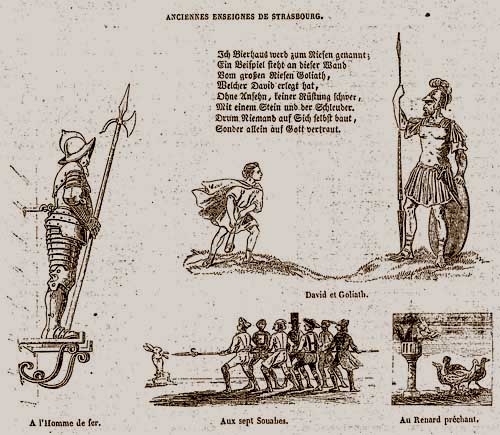 ANCIENNES ENSEIGNES DE STRASBOURG.
Ich Bierhaus werd zum Riesen genannt;
Ein Beispiel steht an dieser Wand
Vom großen Riesen Goliath,
Welcher David erlegt hat,
Ohne Ansehn, keiner Rüstung schwer,
Mit einem Stein und der Schleuder.
Drum Niemand auf Sich selbst baut,
Sonder allein auf Gott vertraut.
David et Goliath.
A l'Homme de fer.
Aux sept Souabes.
Au Renard prêchant.